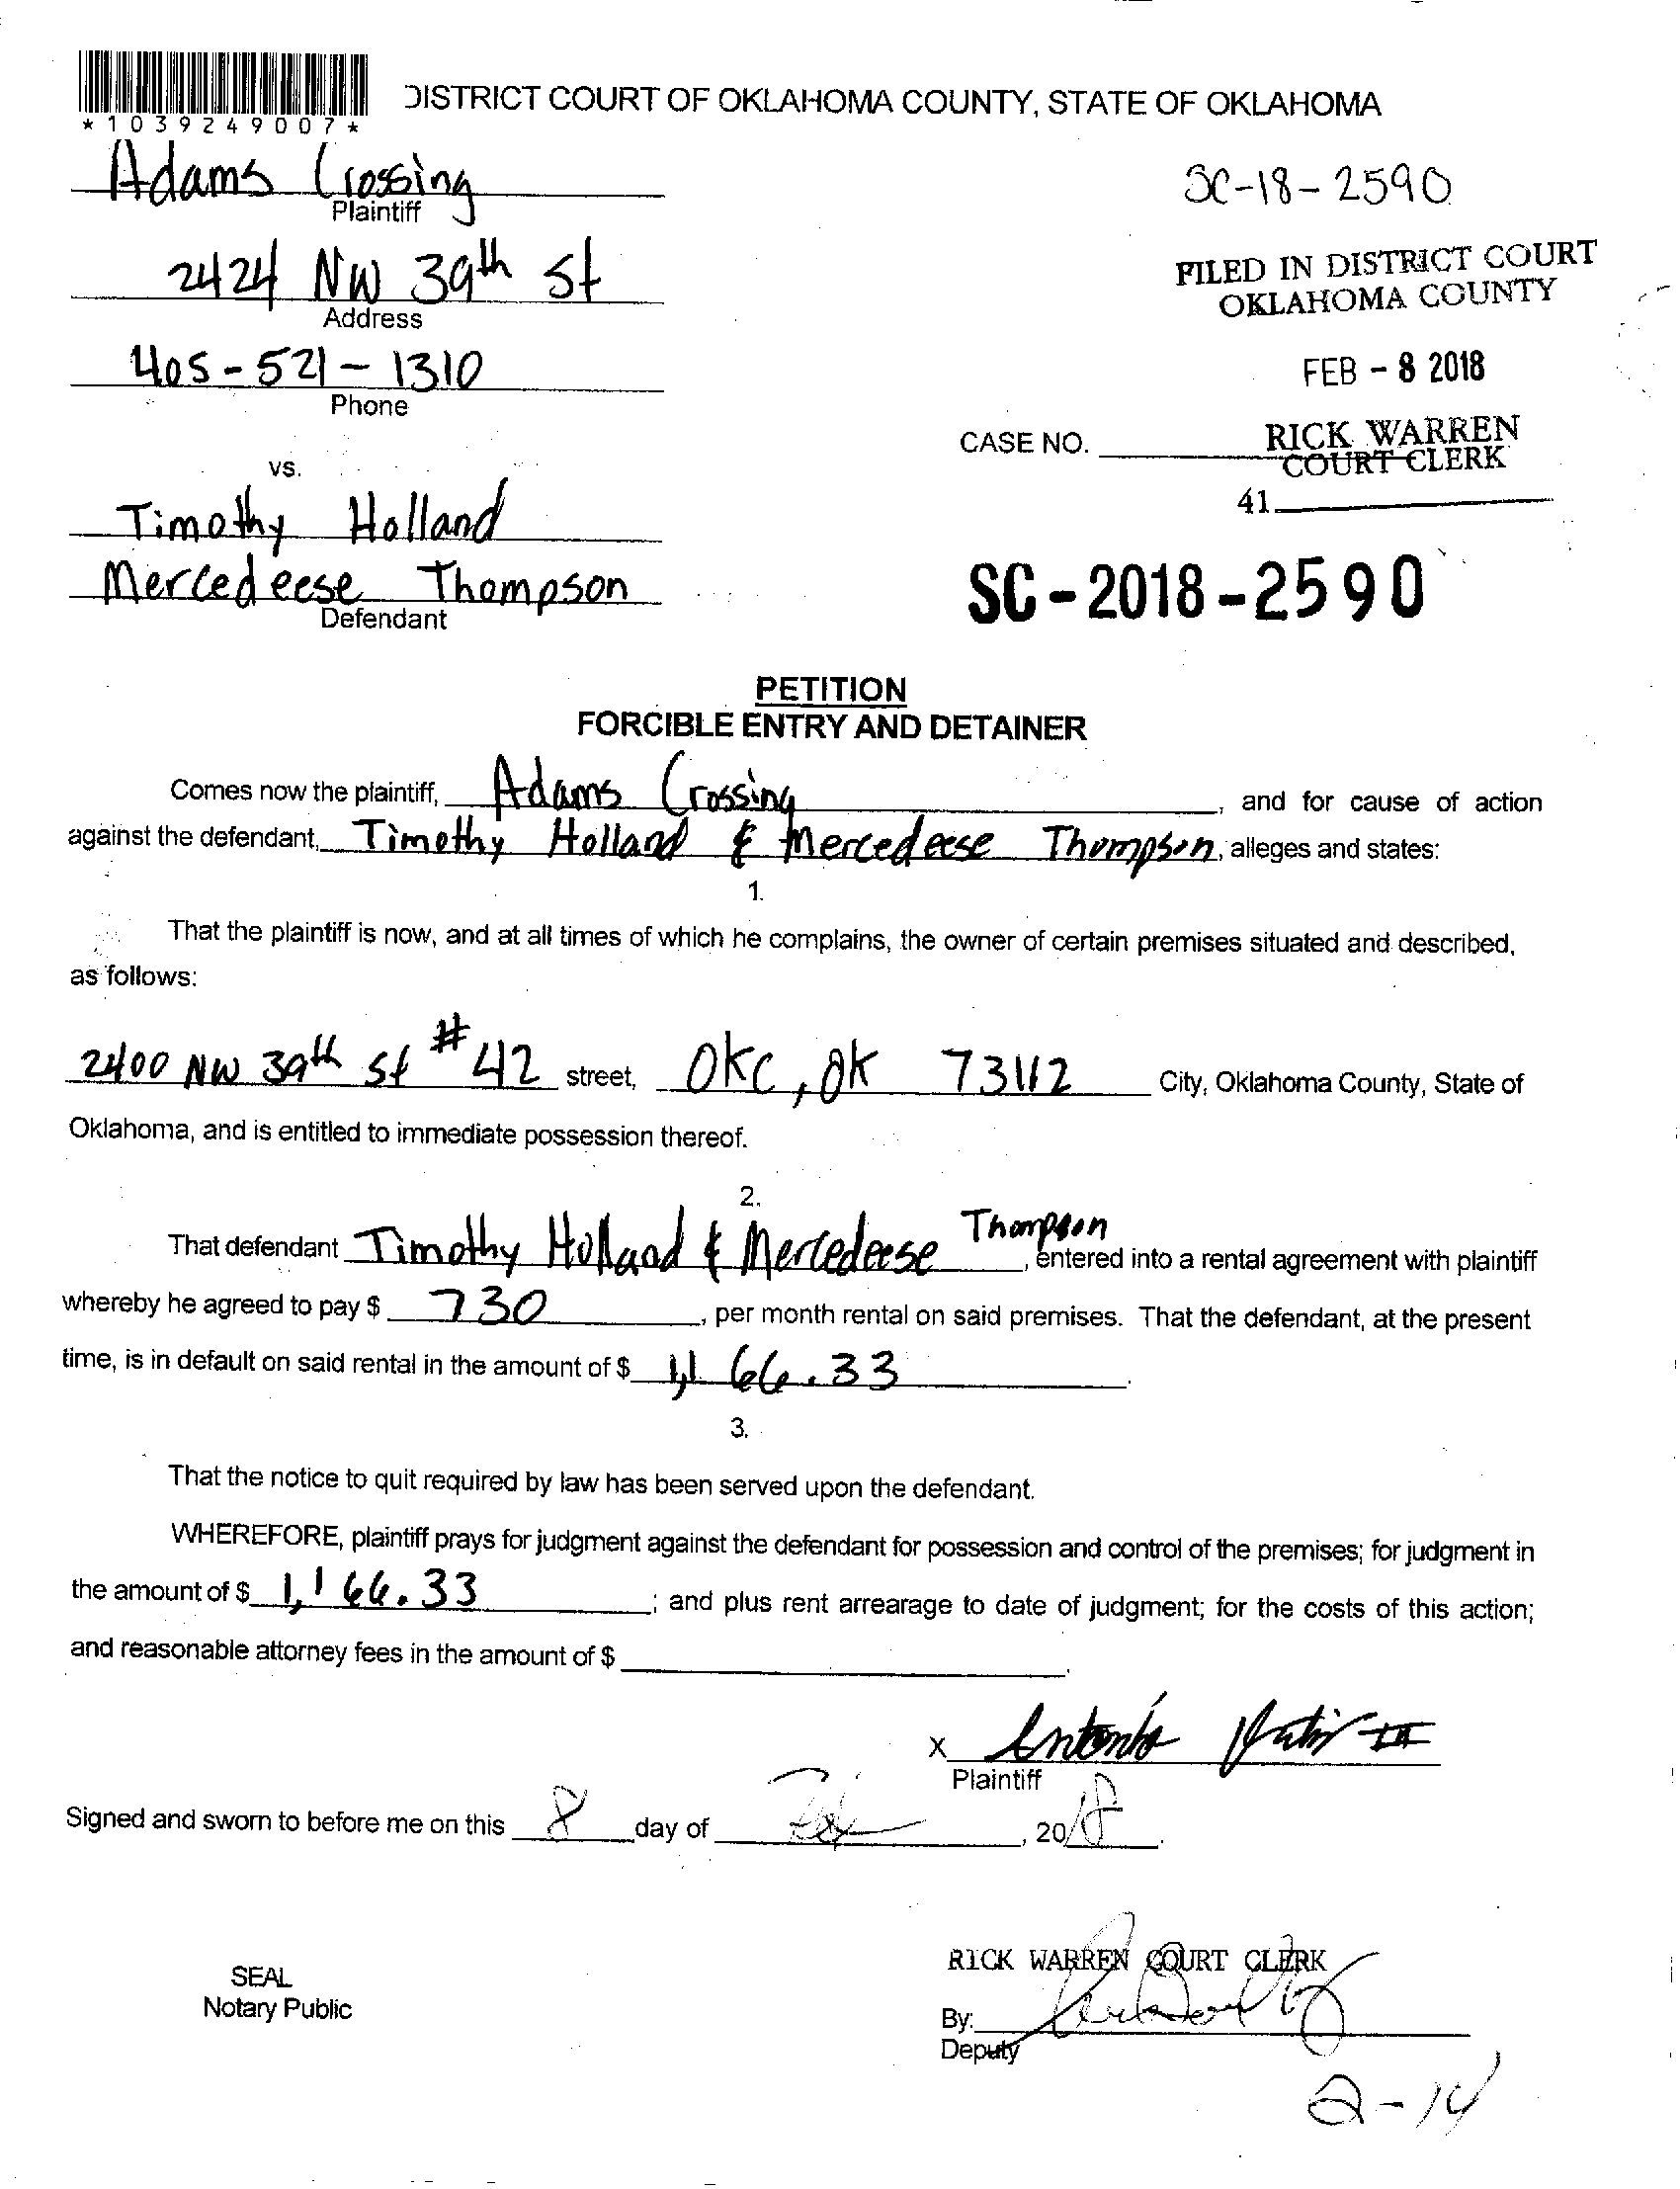 DISTRICT COURT OF OKLAHOMA COUNTY, STATE OF OKLAHOMA
*1039249007*
Adams Crossing
Plaintiff
SC-18-2590
2424 NW 39th St
Address
FILED IN DISTRICT COURT
OKLAHOMA COUNTY
405-521-1310
Phone
FEB - 8 2018
CASE NO.
RICK WARREN
COURT CLERK
vs.
41
Timothy Holland
Mercedeese Thompson
Defendant
SC-2018-2590
PETITION
FORCIBLE ENTRY AND DETAINER
Comes now the plaintiff, Adams Crossing, and for cause of action
against the defendant, Timothy Holland & Mercedeese Thompson, alleges and states:
1.
That the plaintiff is now, and at all times of which he complains, the owner of certain premises situated and described,
as follows:
2400 NW 39th St #42 street, OKC, OK 73112 City, Oklahoma County, State of
Oklahoma, and is entitled to immediate possession thereof.
2.
That defendant Timothy Holland & Mercedeese Thompson, entered into a rental agreement with plaintiff
whereby he agreed to pay $ 730, per month rental on said premises. That the defendant, at the present
time, is in default on said rental in the amount of $ 1,166.33.
3.
That the notice to quit required by law has been served upon the defendant.
WHEREFORE, plaintiff prays for judgment against the defendant for possession and control of the premises; for judgment in
the amount of $ 1,166.33; and plus rent arrearage to date of judgment; for the costs of this action;
and reasonable attorney fees in the amount of $ .
X Antonio III
Plaintiff
Signed and sworn to before me on this 8 day of Feb, 2018.
SEAL
Notary Public
RICK WARREN COURT CLERK
By:
Deputy
2-14